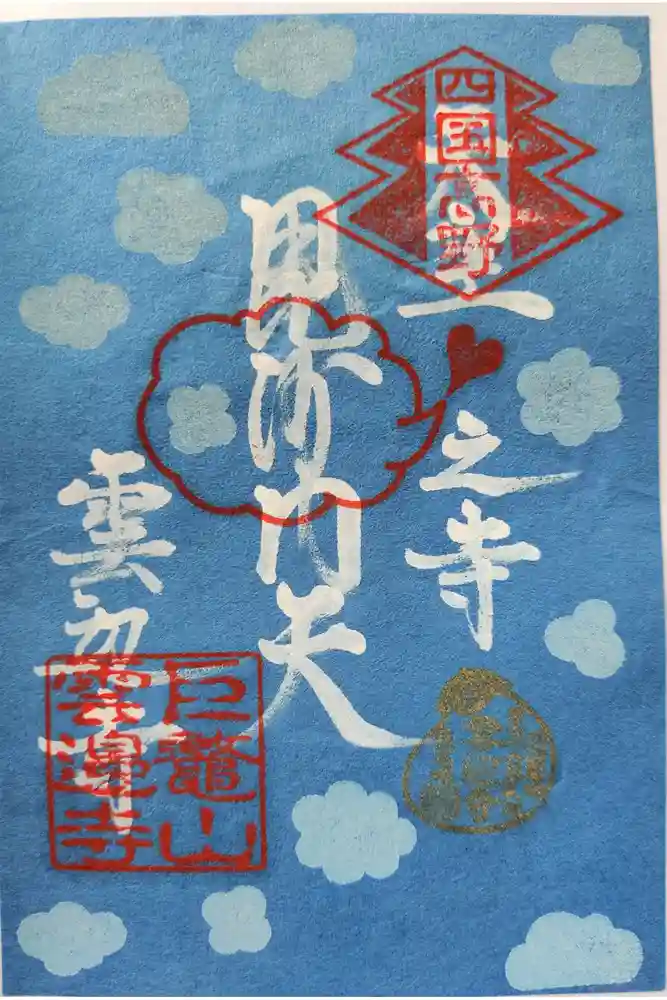 四国高野
上之寺
毘沙門天
雲邊寺
巨鼇山
雲邊寺